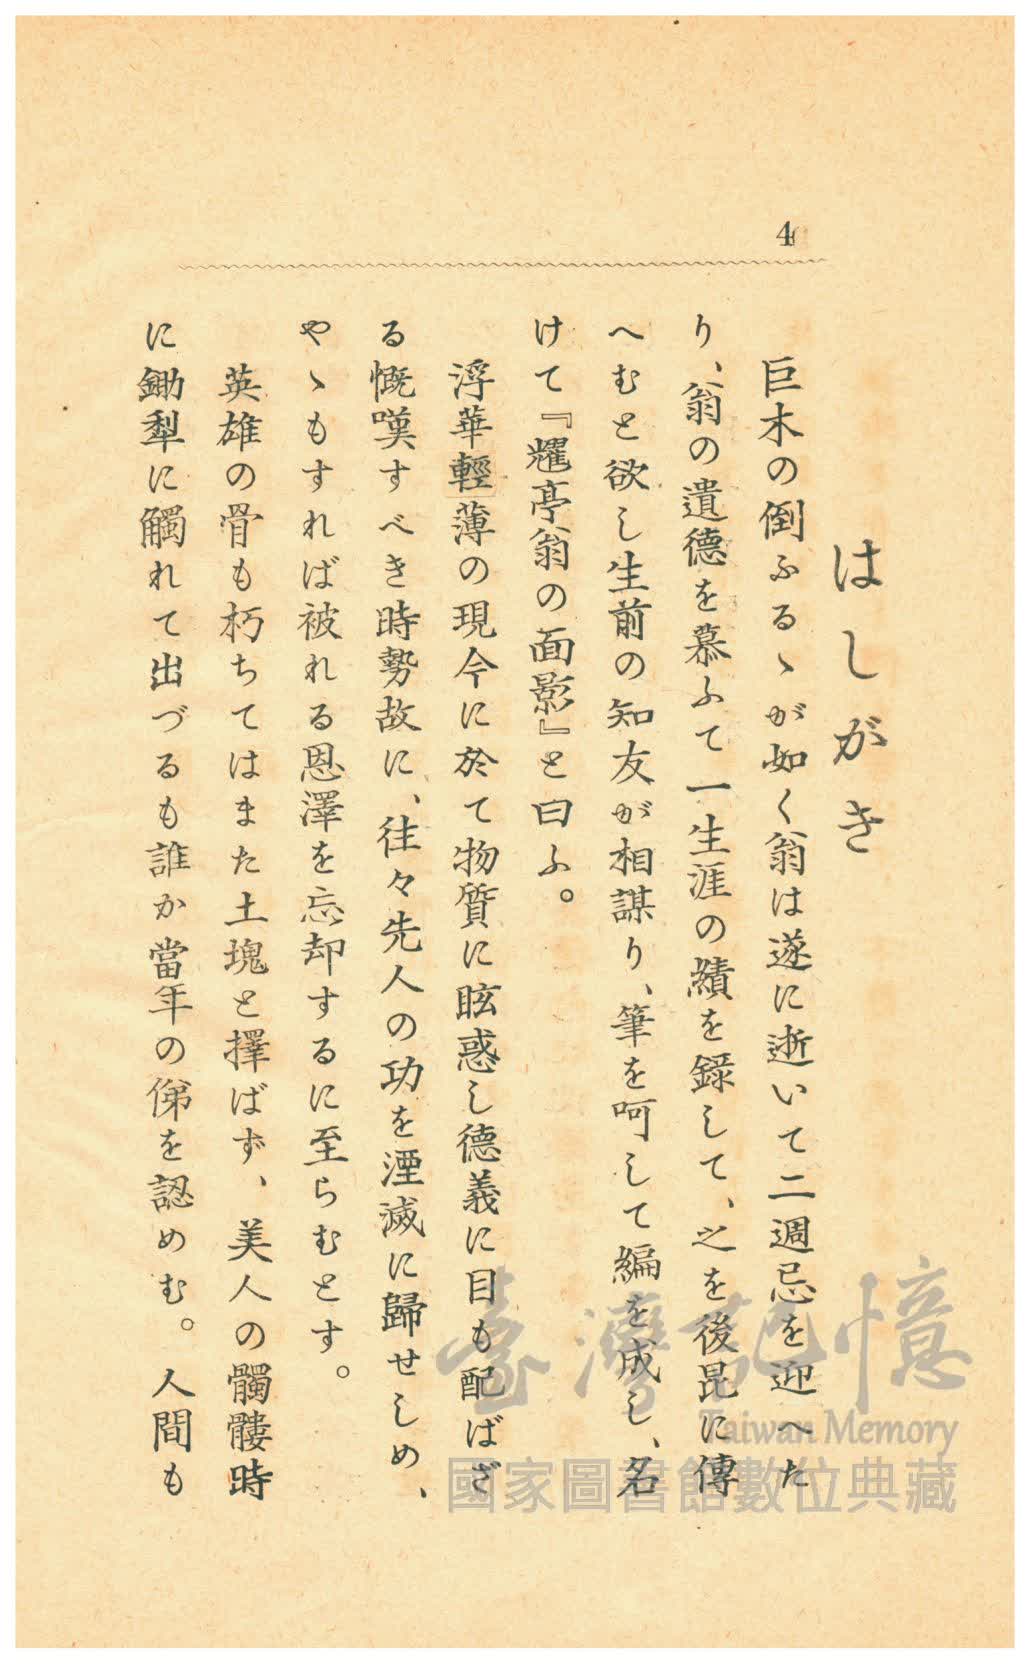 4
はしがき
巨木の倒ふるゝが如く翁は遂に逝いて二週忌を迎へた
り、翁の遺德を慕ふて一生涯の績を錄して、之を後昆に傳
へむと欲し生前の知友が相謀り、筆を呵して編を成し、名
けて『耀亭翁の面影』と曰ふ。
浮華輕薄の現今に於て物質に眩惑し德義に目も配ばざ
る慨嘆すべき時勢故に、往々先人の功を湮滅に歸せしめ、
やゝもすれば被れる恩澤を忘却するに至らむとす。
英雄の骨も朽ちてはまた土塊と擇ばず、美人の髑髏時
に鋤犁に觸れて出づるも誰か當年の俤を認めむ。人間も
臺灣記憶
Taiwan Memory
國家圖書館數位典藏